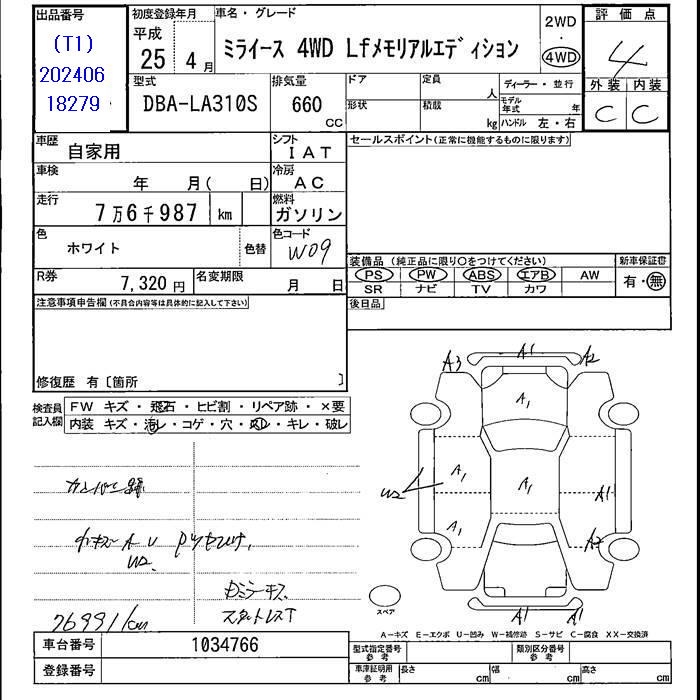 出品番号
(T1)
202406
18279
初度登録年月
平成
25年 4月
車名・グレード
ミライース 4WD Lfメモリアルエディション
2WD
・
4WD
評価点
4
外装 内装
C C
型式
DBA-LA310S
排気量
660
CC
ドア
形状
定員
人
積載
kg
ディーラー・並行
モデル年式 年
ハンドル 左・右
車歴
自家用
シフト
IAT
車検
年 月( 日)
冷房
AC
走行
7万6千987 km
燃料
ガソリン
色
ホワイト
色替
色コード
W09
R券
7,320 円
名変期限
月 日
セールスポイント(正常に機能するものに限ります)
装備品 (純正品に限り○をつけてください)
PS PW ABS エアB AW
SR ナビ TV カワ
新車保証書
有・無
後日品
注意事項申告欄(不具合内容等は具体的に記入して下さい)
修復歴 有〔箇所 〕
検査員記入欄
FW キズ・飛石・ヒビ割・リペア跡・×要
内装 キズ・汚レ・コゲ・穴・スレ・キレ・破レ
A3 A1 A2
A1
W2 A1 A1 A1
A1 A2
A1 A1
スペア
76991km
スタットレスT
A-キズ E-エクボ U-凹み W-補修跡 S-サビ C-腐食 XX-交換済
車台番号
1034766
登録番号
型式指定番号
参考
類別区分番号
参考
車庫証明用
参考
長さ cm
幅 cm
高さ cm